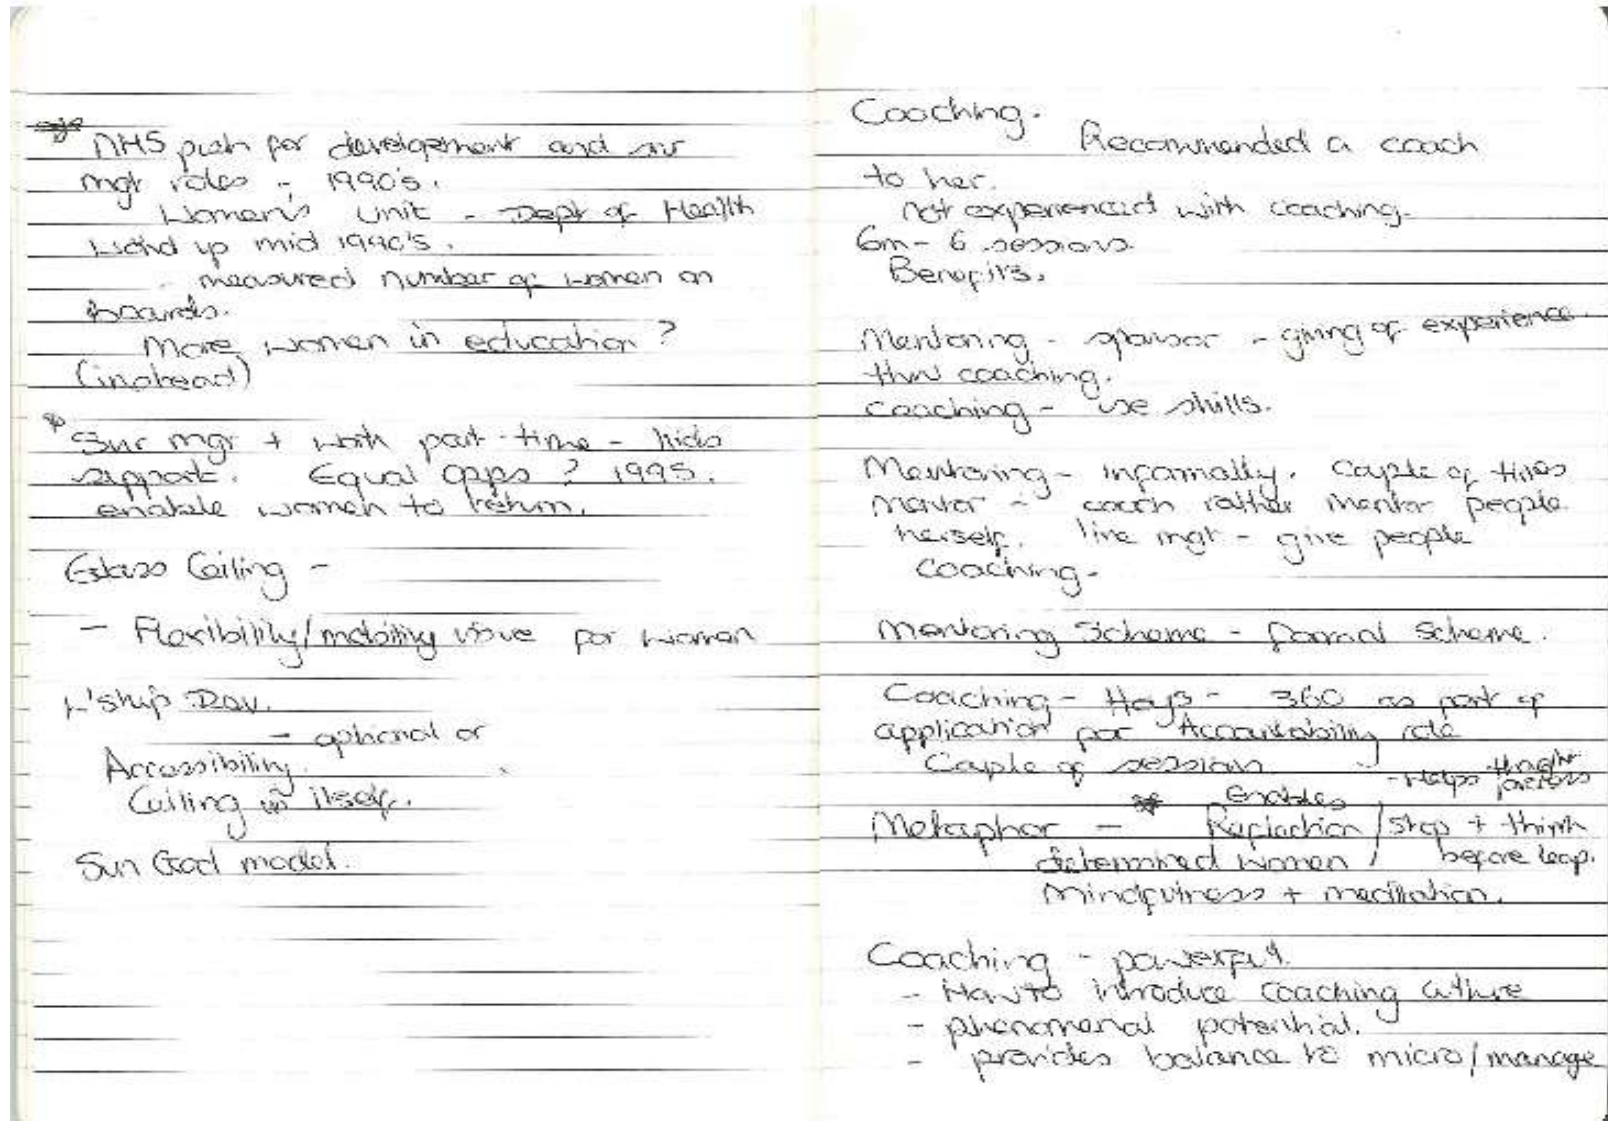 NHS push for development and snr
mgr roles - 1990's.
Women's Unit - Dept of Health
Wond up mid 1990's.
- measured number of women on
boards.
More women in education?
(instead)
Snr mgr + work part-time - kids
support. Equal opps? 1995.
enable women to return.
Glass Ceiling -
- Flexibility/mobility issue for women
L'ship Dev.
- optional or
Accessibility.
Ceiling in itself.
Sun God model.
Coaching.
Recommended a coach
to her.
not experienced with coaching.
6m - 6 sessions.
Benefits.
Mentoring - sponsor - giving of experience.
thru coaching.
coaching - use skills.
Mentoring - informally. Couple of times
mentor - coach rather mentor people
herself. line mgr - give people
coaching.
Mentoring Scheme - formal scheme.
Coaching - Hays - 360 as part of
application for Accountability role
Couple of sessions
- Helps thought process
* Enables
Metaphor - Reflection / stop + think
determined women / before leap.
Mindfulness + meditation.
Coaching - powerful.
- How to introduce coaching culture
- phenomenal potential.
- provides balance to micro/manage